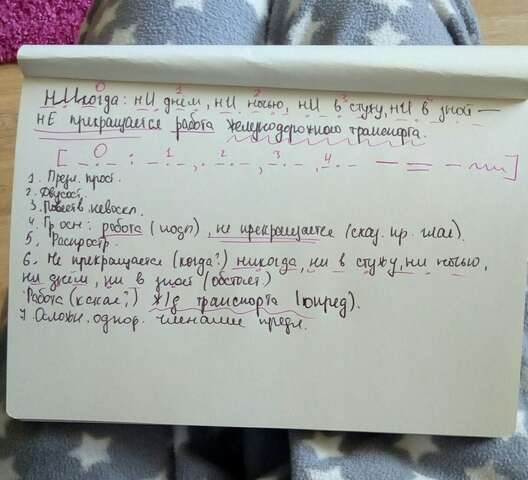 0 1 2 3 4
нИкогда: нИ днём, нИ ночью, нИ в стужу, нИ в зной —
нЕ прекращается работа железнодорожного транспорта.
[ 0 : 1 , 2 , 3 , 4 — = — ]
1. Предл. прост.
2. Двусост.
3. Повеств. невоскл.
4. Гр. осн: работа (подл), не прекращается (сказ. пр. глаг).
5. Распростр.
6. Не прекращается (когда?) никогда, ни в стужу, ни ночью,
ни днём, ни в зной (обстоят)
Работа (какая?) ж/д транспорта (опред).
7. Осложн. однор. членами предл.